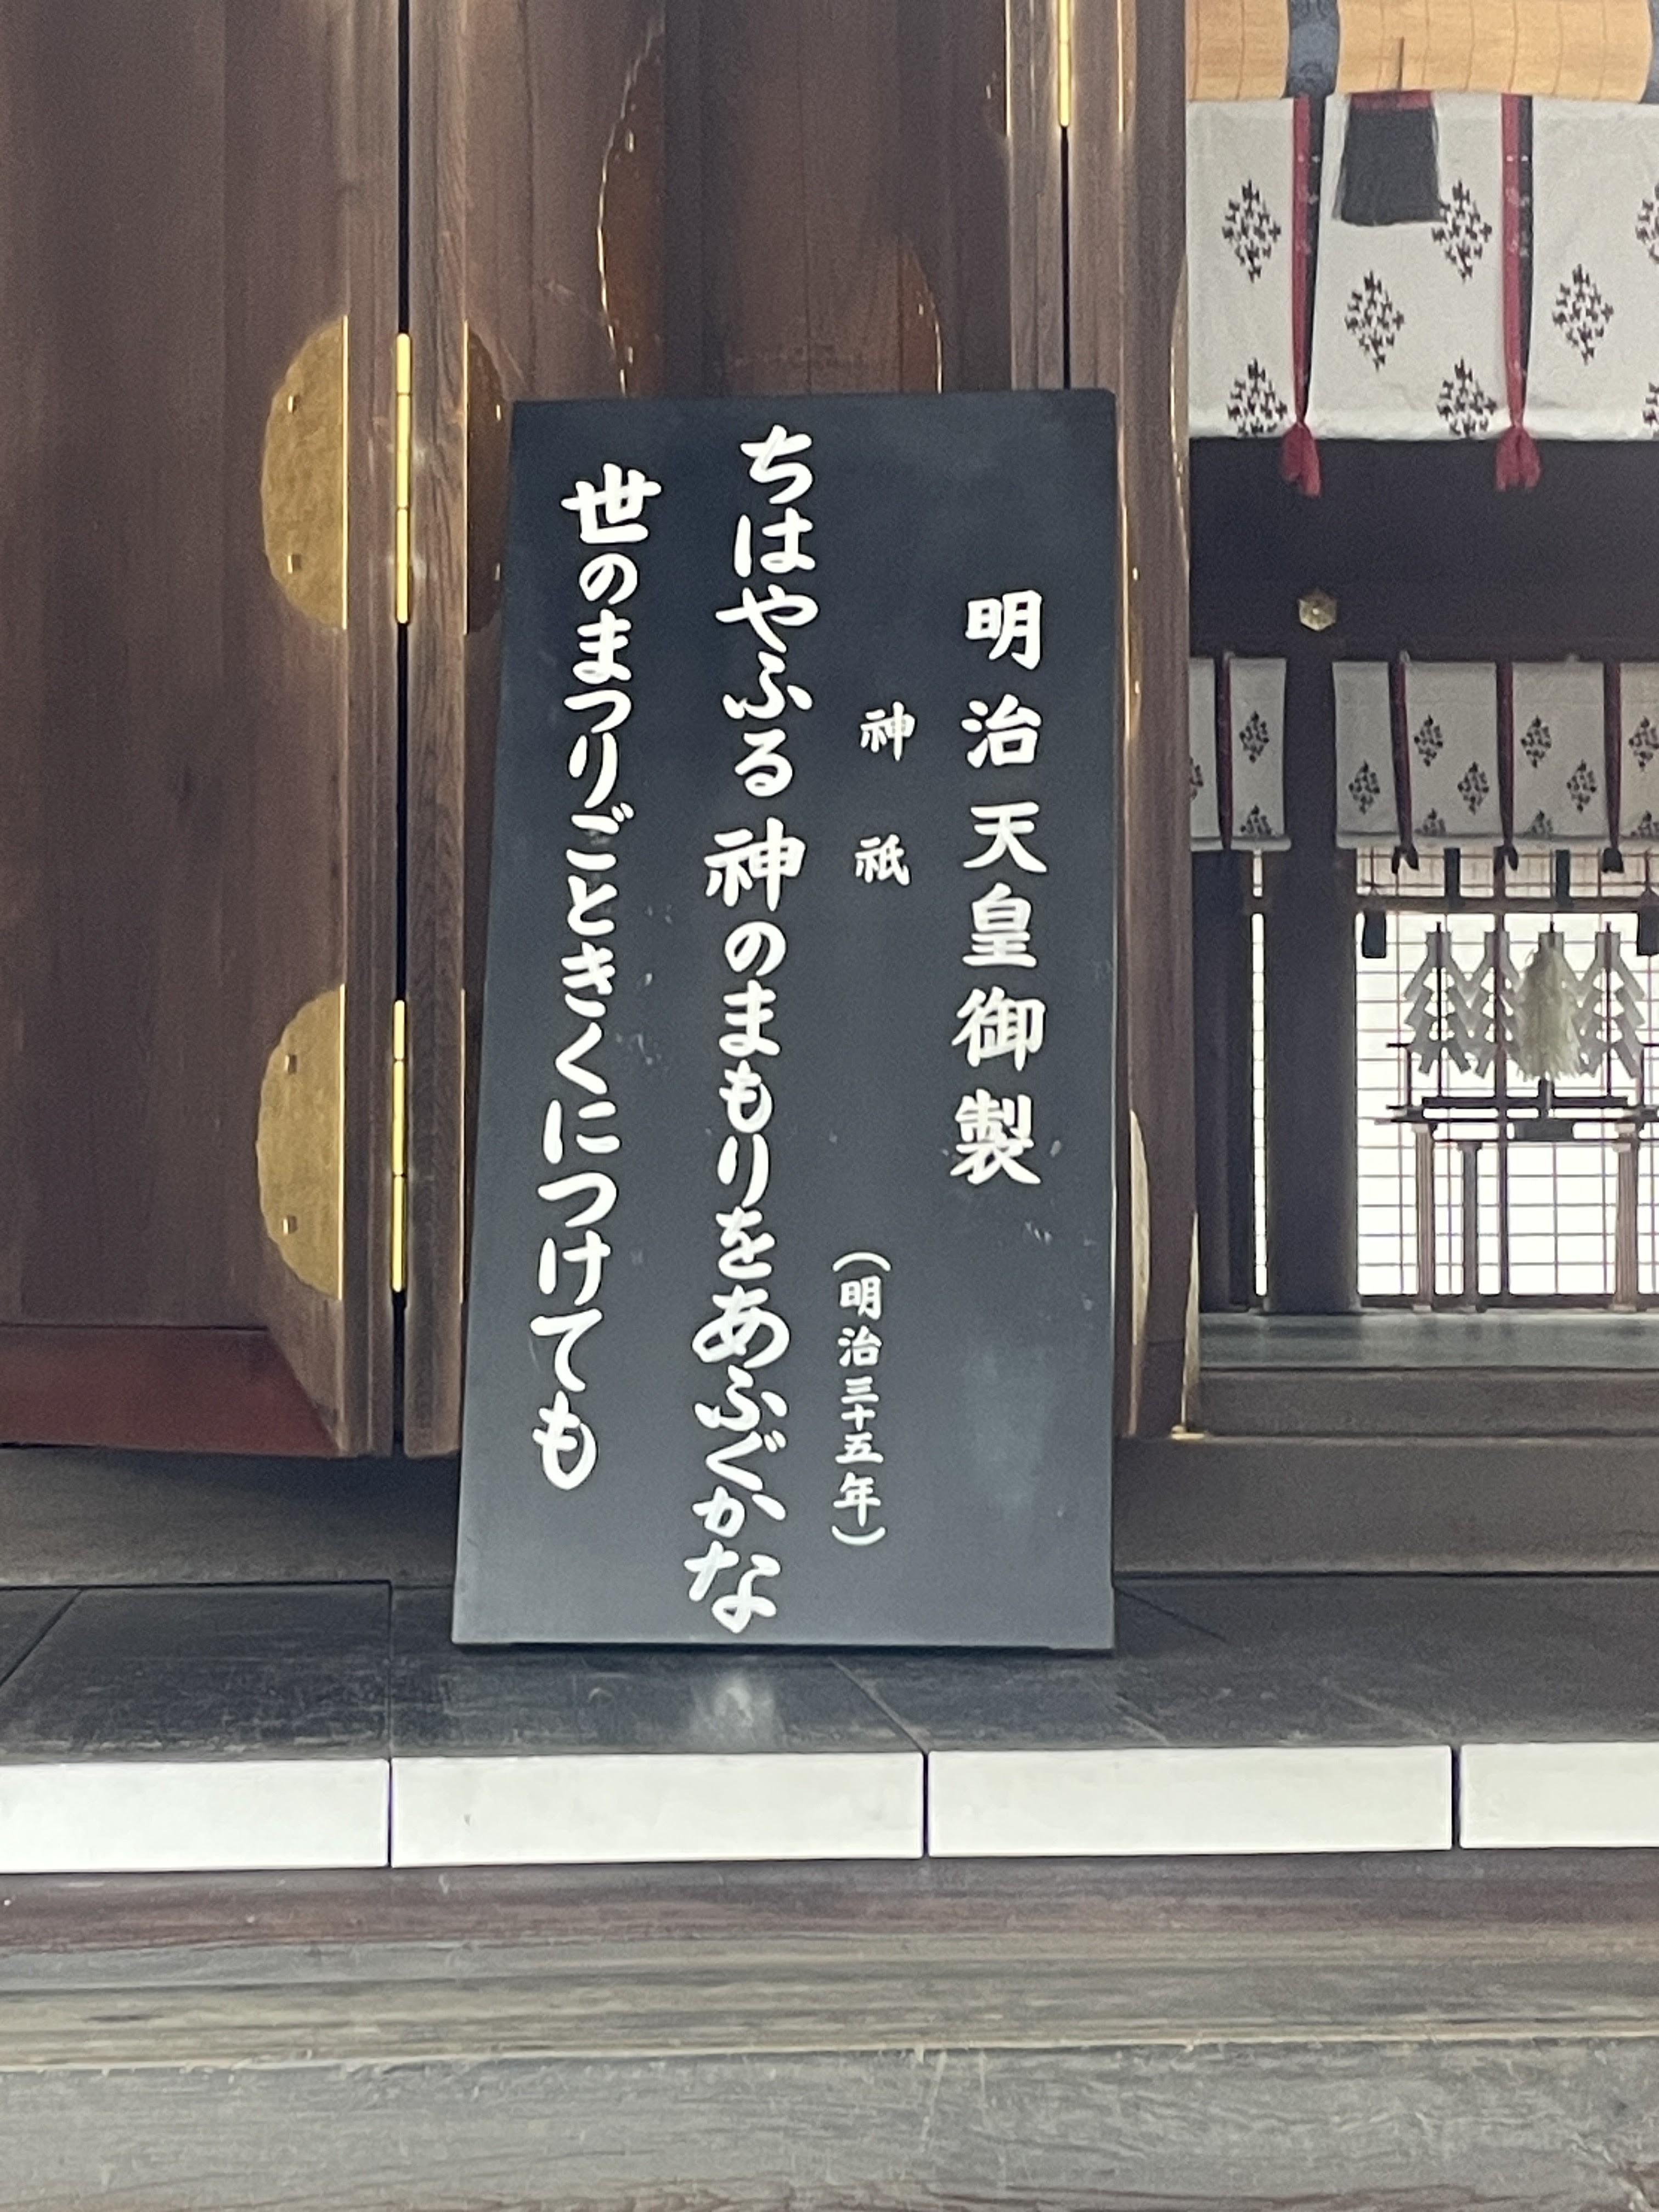 明治天皇御製
神祇
(明治三十五年)
ちはやふる神のまもりをあふぐかな
世のまつりごときくにつけても